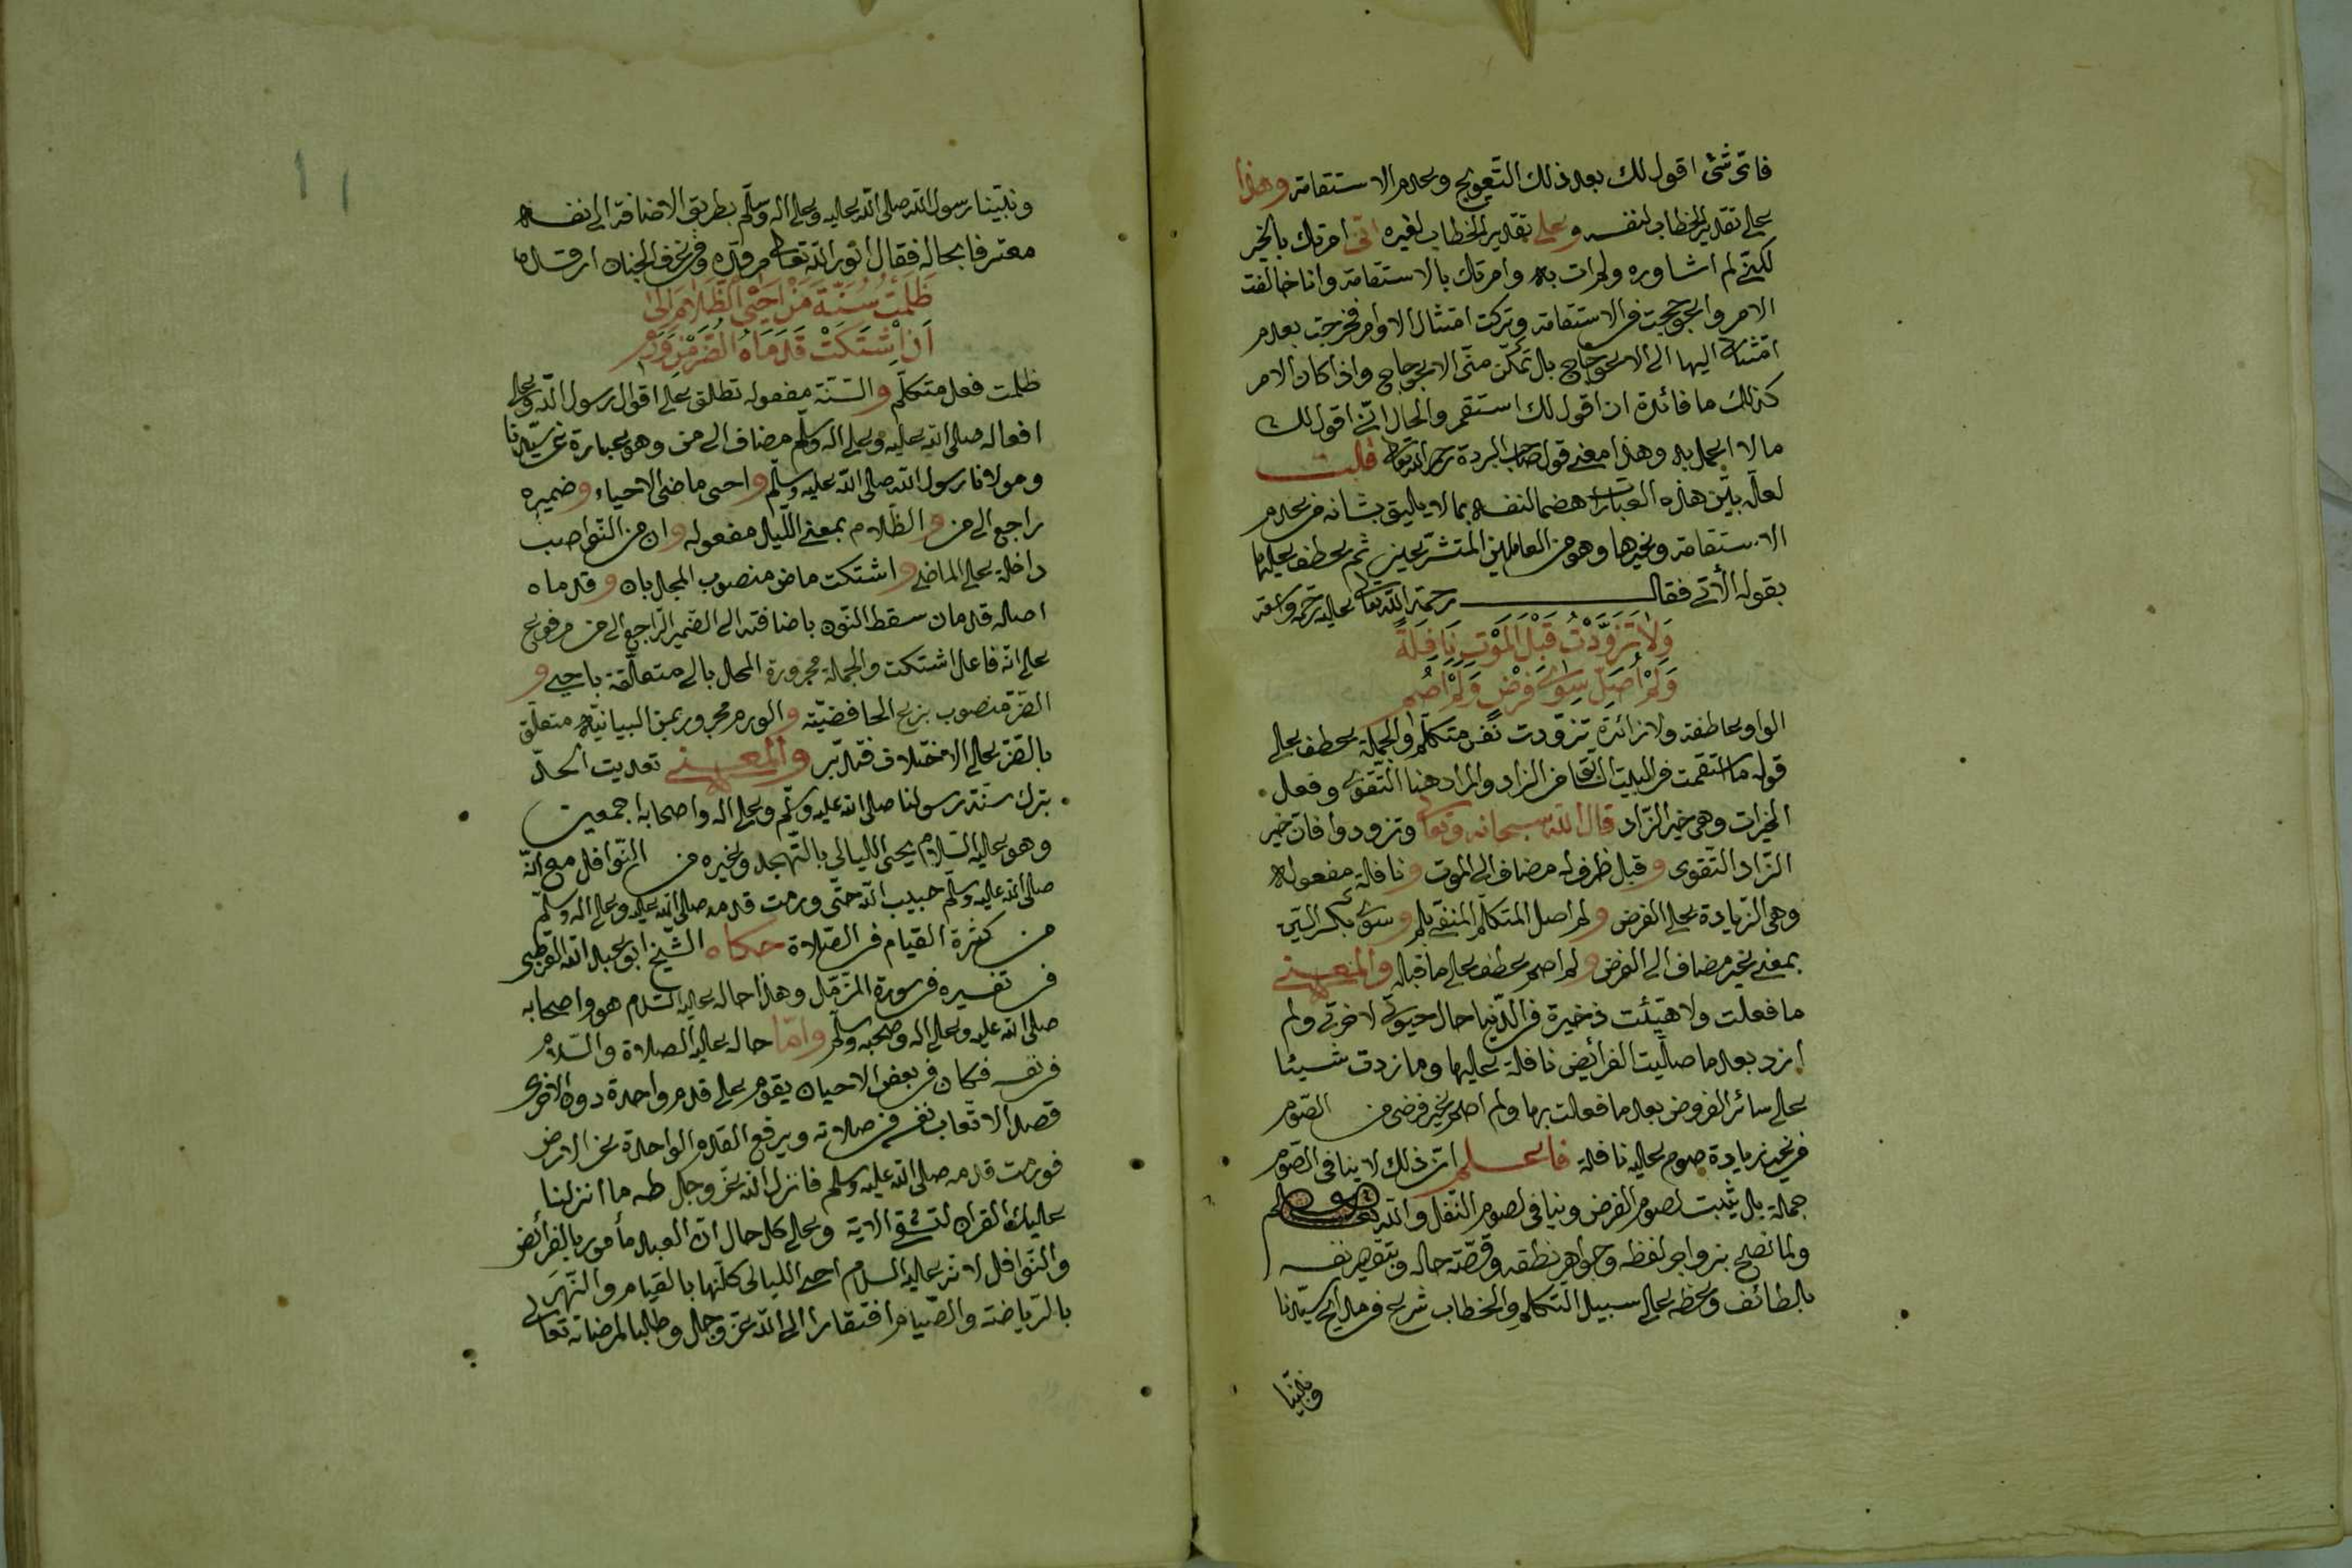 فاىّ شئ اقول لك بعد ذلك التّعويج وعدم الاستقامة وهذا
على تقدير الخطاب لنفسه وعلى تقدير الخطاب لغيره انّى امرتك بالخير
لكنّى لم اشاوره ولم ات به وامرتك بالاستقامة وانا خالفت
الامر واعوججت فى الاستقامة وتركت امتثال الاوامر فخرجت بعدم
امتثالى اليها الى الاعوجاج بل تمكّن منّى الاعوجاج واذا كان الامر
كذلك ما فائدة ان اقول لك استقم والحال انّى اقول لك
ما لا اعمل به وهذا معنى قول صاحب البردة رحمه الله تعالى قلت
لعلّه بيّن هذه العبارات هضما لنفسه بما لا يليق بشانه من عدم
الاستقامة وغيرها وهو من العاملين المتشرّعين ثم عطف عليها
بقوله الآتى فقال رحمة الله تعالى عليه رحمة واسعة
وَلاَ تَزَوَّدْتُ قَبْلَ الْمَوْتِ نَافِلَةً
وَلَمْ اُصَلِّ سِوٰى فَرْضٍ وَلَمْ اَصُمِ
الواو عاطفة ولا زائدة تزوّدت نفس متكلّم والجملة عطف على
قوله ما استقمت فى البيت السابق من الزاد والمراد هنا التّقوى وفعل
الخيرات وهى خير الزّاد قال الله سبحانه وتعالى وتزودوا فانّ خير
الزّاد التّقوى وقبل ظرف له مضاف الى الموت ونافلة مفعوله
وهى الزّيادة على الفرض ولم اصل المتكلّم المنفى بلم وسوى بكسر السّين
بمعنى غير مضاف الى الفرض ولم اصم عطف على ما قبله والمعنى
ما فعلت ولا هيّئت ذخيرة فى الدّنيا حال حيوتى لاخرتى ولم
ازد بعد ما صلّيت الفرائض نافلة عليها وما زدت شيئا
على سائر الفروض بعد ما فعلت بها ولم اصم غير فرضى من الصّوم
من غير زيادة صوم عليه نافلة فاعلم انّ ذلك لا ينافى الصّوم
جملة بل يثبت لصوم الفرض وينافى لصوم النّفل والله تعالى اعلم
ولما نصح بزواجر لفظه وجواهر نطقه وقصّة حاله وبتقصير نفسه
بلطائف وعظه على سبيل التّكلّم والخطاب شرع فى مدايح سيّدنا
ونبيّنا
ونبيّنا رسول الله صلى الله عليه وعلى اله وسلّم بطريق الاضافة الى نفسه
معترفا بحاله فقال نوّر الله تعالى مرقده وفى غرف الجنان ارقده
ظَلَمْتُ سُنَّةَ مَنْ اَحْيَى الظَّلاَمَ اِلٰى
اَنِ اشْتَكَتْ قَدَمَاهُ الضُّرَّ مِنْ وَرَمِ
ظلمت فعل متكلّم والسّنّة مفعوله تطلق على اقوال رسول الله وعلى
افعاله صلى الله عليه وعلى اله وسلم مضاف الى من وهو عبارة عن سيّدنا
ومولانا رسول الله صلى الله عليه وسلّم واحى ماضى الاحياء وضميره
راجع الى من والظّلام بمعنى اللّيل مفعوله وان من النّواصب
داخلة على الماضى واشتكت ماض منصوب المحل بان وقدماه
اصله قدمان سقط النّون باضافته الى الضمير الرّاجع الى من مرفوع
على انّه فاعل اشتكت والجملة مجرورة المحل بالى متعلّقة باحيى و
الضّرّ منصوب بنزع الخافضيّة والورم مجرور بمن البيانيّة متعلّق
بالضّرّ على الاختلاف فتدبّر والمعنى تعديت الحدّ
بترك سنّة رسولنا صلى الله عليه وسلّم وعلى اله واصحابه اجمعين
وهو عليه السّلام يحى الليالى بالتّهجد وغيره من النّوافل مع انّه
صلى الله عليه وسلّم حبيب الله حتّى ورمت قدمه صلى الله عليه وعلى اله وسلّم
من كثرة القيام فى الصّلاة حكاه الشّيخ ابو عبد الله القرطبى
فى تفسيره فى سورة المزّمّل وهذا حاله عليه السّلام هو واصحابه
صلى الله عليه وعلى اله وصحبه وسلّم وامّا حاله عليه الصلاة والسّلام
فى نفسه فكان فى بعض الاحيان يقوم على قدم واحدة دون الاخرى
قصدا لاتعاب نفسه فى صلاته ويرفع القدم الواحدة عن الارض
فورمت قدمه صلى الله عليه وسلم فانزل الله عزّ وجلّ طه ما انزلنا
عليك القران لتشقى الاية وعلى كل حال انّ العبد مأمور بالفرائض
والنّوافل لانّه عليه السلام احى الليالى كلّها بالقيام والنّهر
بالرّياضة والصّيام افتقارا الى الله عزّ وجل وطلبا لمرضاته تعالى